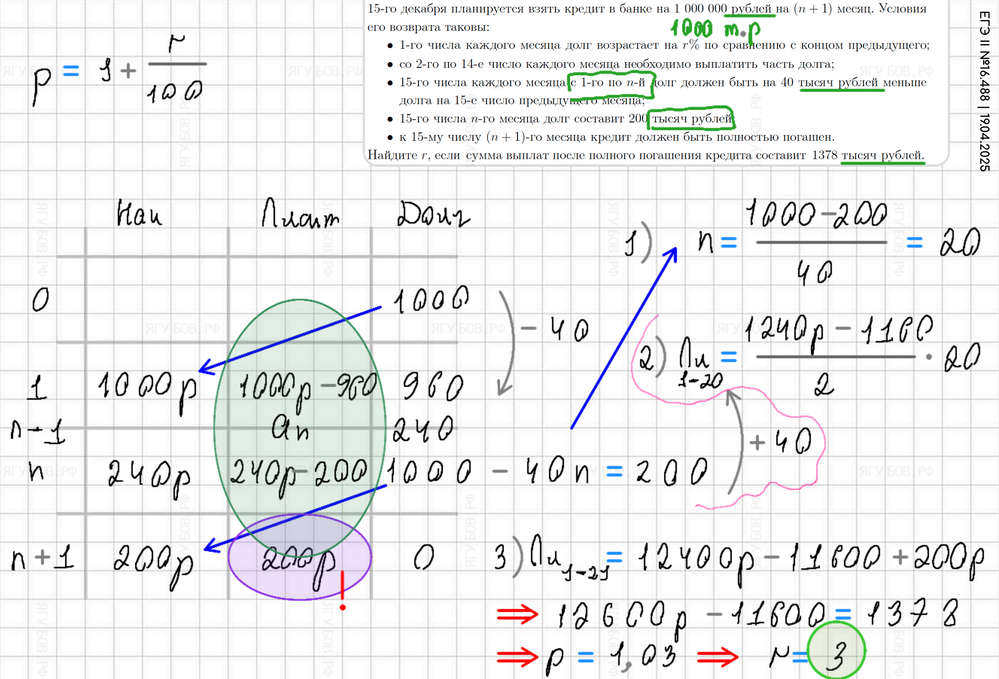 15-го декабря планируется взять кредит в банке на 1 000 000 рублей на (n + 1) месяц. Условия
его возврата таковы:
1000 т.р
• 1-го числа каждого месяца долг возрастает на r% по сравнению с концом предыдущего;
• со 2-го по 14-е число каждого месяца необходимо выплатить часть долга;
• 15-го числа каждого месяца с 1-го по n-й долг должен быть на 40 тысяч рублей меньше
долга на 15-е число предыдущего месяца;
• 15-го числа n-го месяца долг составит 200 тысяч рублей
• к 15-му числу (n + 1)-го месяца кредит должен быть полностью погашен.
Найдите r, если сумма выплат после полного погашения кредита составит 1378 тысяч рублей.
ЕГЭ II №16.488 | 19.04.2025
p = 1 + r/100
Нач Плат Долг
0 1000
- 40
1 1000p 1000p - 960 960
n-1 an 240
n 240p 240p - 200 1000 - 40n = 200
n+1 200p 200p! 0
1) n = (1000 - 200)/40 = 20
2) Пл 1-20 = (1240p - 1160)/2 · 20
+ 40
3) Пл 1-21 = 12400p - 11600 + 200p
⇒ 12600p - 11600 = 1378
⇒ p = 1,03 ⇒ r = 3
ЯГУБОВ.РФ